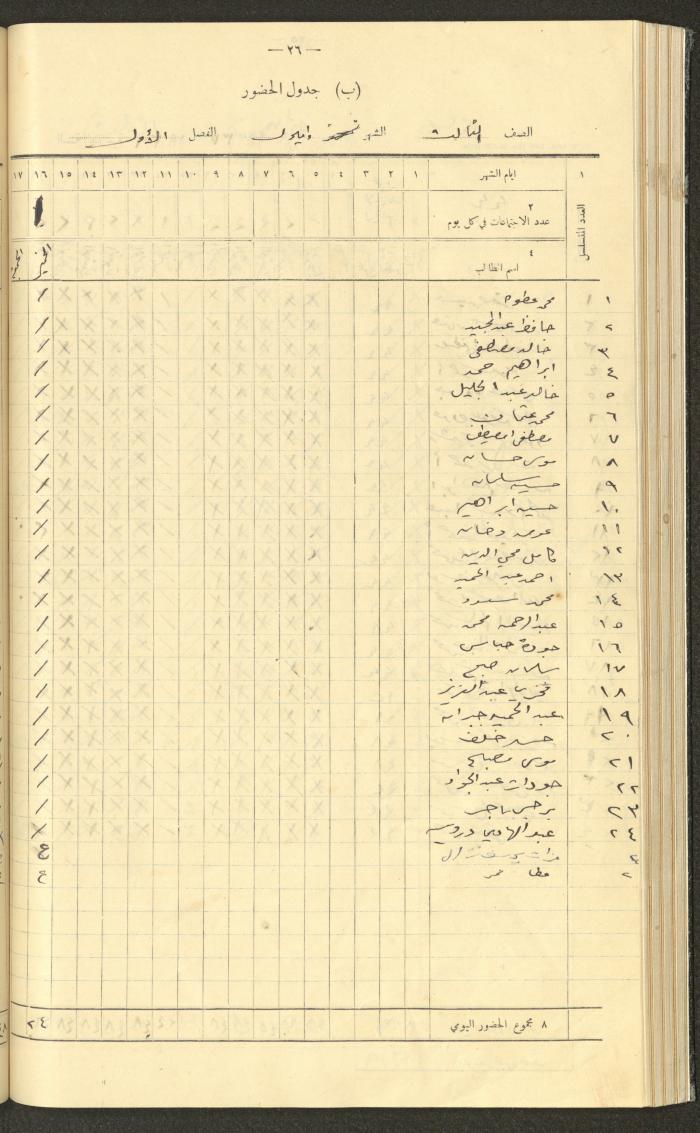 — ٢٦ —
(ب) جدول الحضور
الصف الثالث الشهر تموز وايلول الفصل الأول
١ ايام الشهر ١ ٢ ٣ ٤ ٥ ٦ ٧ ٨ ٩ ١٠ ١١ ١٢ ١٣ ١٤ ١٥ ١٦ ١٧
العدد المتسلسل
٢
عدد الاجتماعات في كل يوم
٤
اسم الطالب
١
٢ حافظ عبد المجيد
٣ خالد مصطفى
٤ ابراهيم حمد
٥ خالد عبد الجليل
٦ محمد عثمان
٧ مصطفى
٨ موسى حسان
٩ حسين سلمان
١٠ حسين ابراهيم
١١
١٢ كامل محي الدين
١٣ احمد عبد الحميد
١٤ محمد سعود
١٥ عبد الرحمن محمد
١٦ جودة عباس
١٧ سلمان
١٨ فخري عبد العزيز
١٩ عبد الحميد جبران
٢٠ حسن خلف
٢١ موسى مصلح
٢٢ جودات عبد الجواد
٢٣
٢٤ عبد الهادي درويش
٢ ع
٢ ع
٨ مجموع الحضور اليومي ٢٤